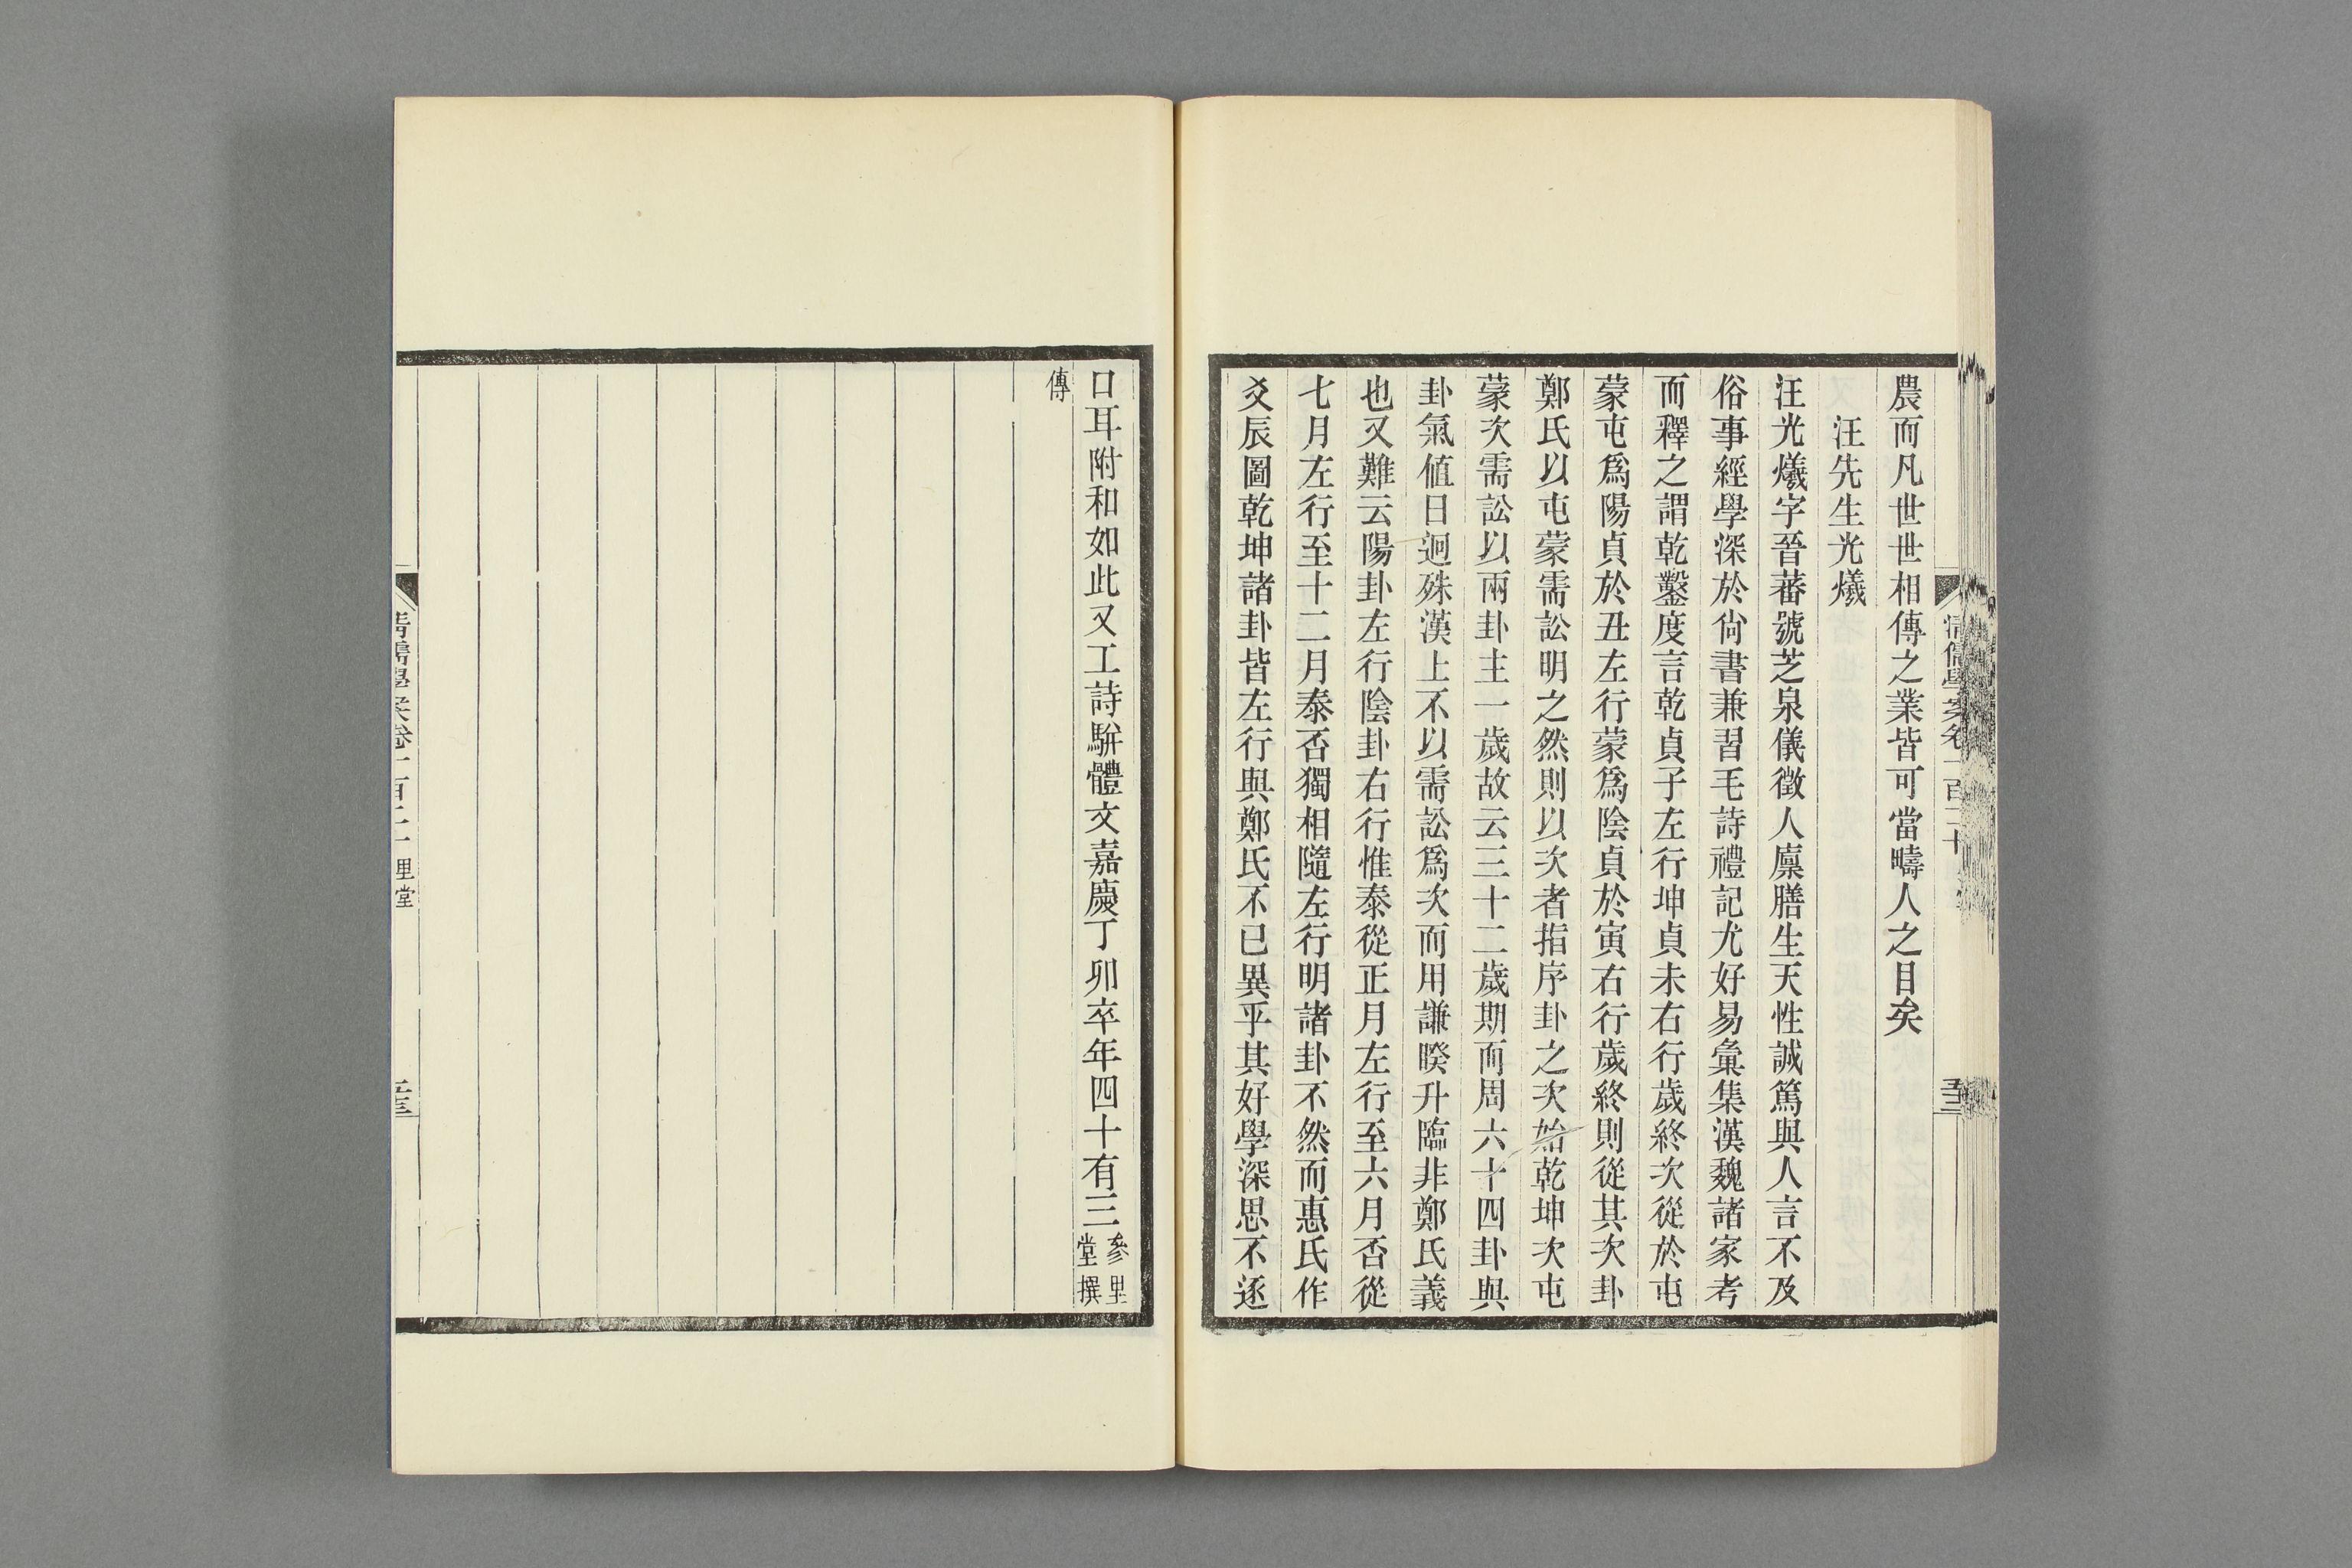 農而凡世世相傳之業皆可當疇人之目矣
汪先生光爔
汪光爔字晉蕃號芝泉儀徵人廩膳生天性誠篤與人言不及
俗事經學深於尙書兼習毛詩禮記尤好易彙集漢魏諸家考
而釋之謂乾鑿度言乾貞子左行坤貞未右行歲終次從於屯
蒙屯爲陽貞於丑左行蒙爲陰貞於寅右行歲終則從其次卦
鄭氏以屯蒙需訟明之然則以次者指序卦之次始乾坤次屯
蒙次需訟以兩卦主一歲故云三十二歲期而周六十四卦與
卦氣値日迥殊漢上不以需訟爲次而用謙睽升臨非鄭氏義
也又難云陽卦左行陰卦右行惟泰從正月左行至六月否從
七月左行至十二月泰否獨相隨左行明諸卦不然而惠氏作
爻辰圖乾坤諸卦皆左行與鄭氏不已異乎其好學深思不逐
口耳附和如此又工詩駢體文嘉慶丁卯卒年四十有三參里
堂撰
傳
清儒學案卷一百二十
里堂